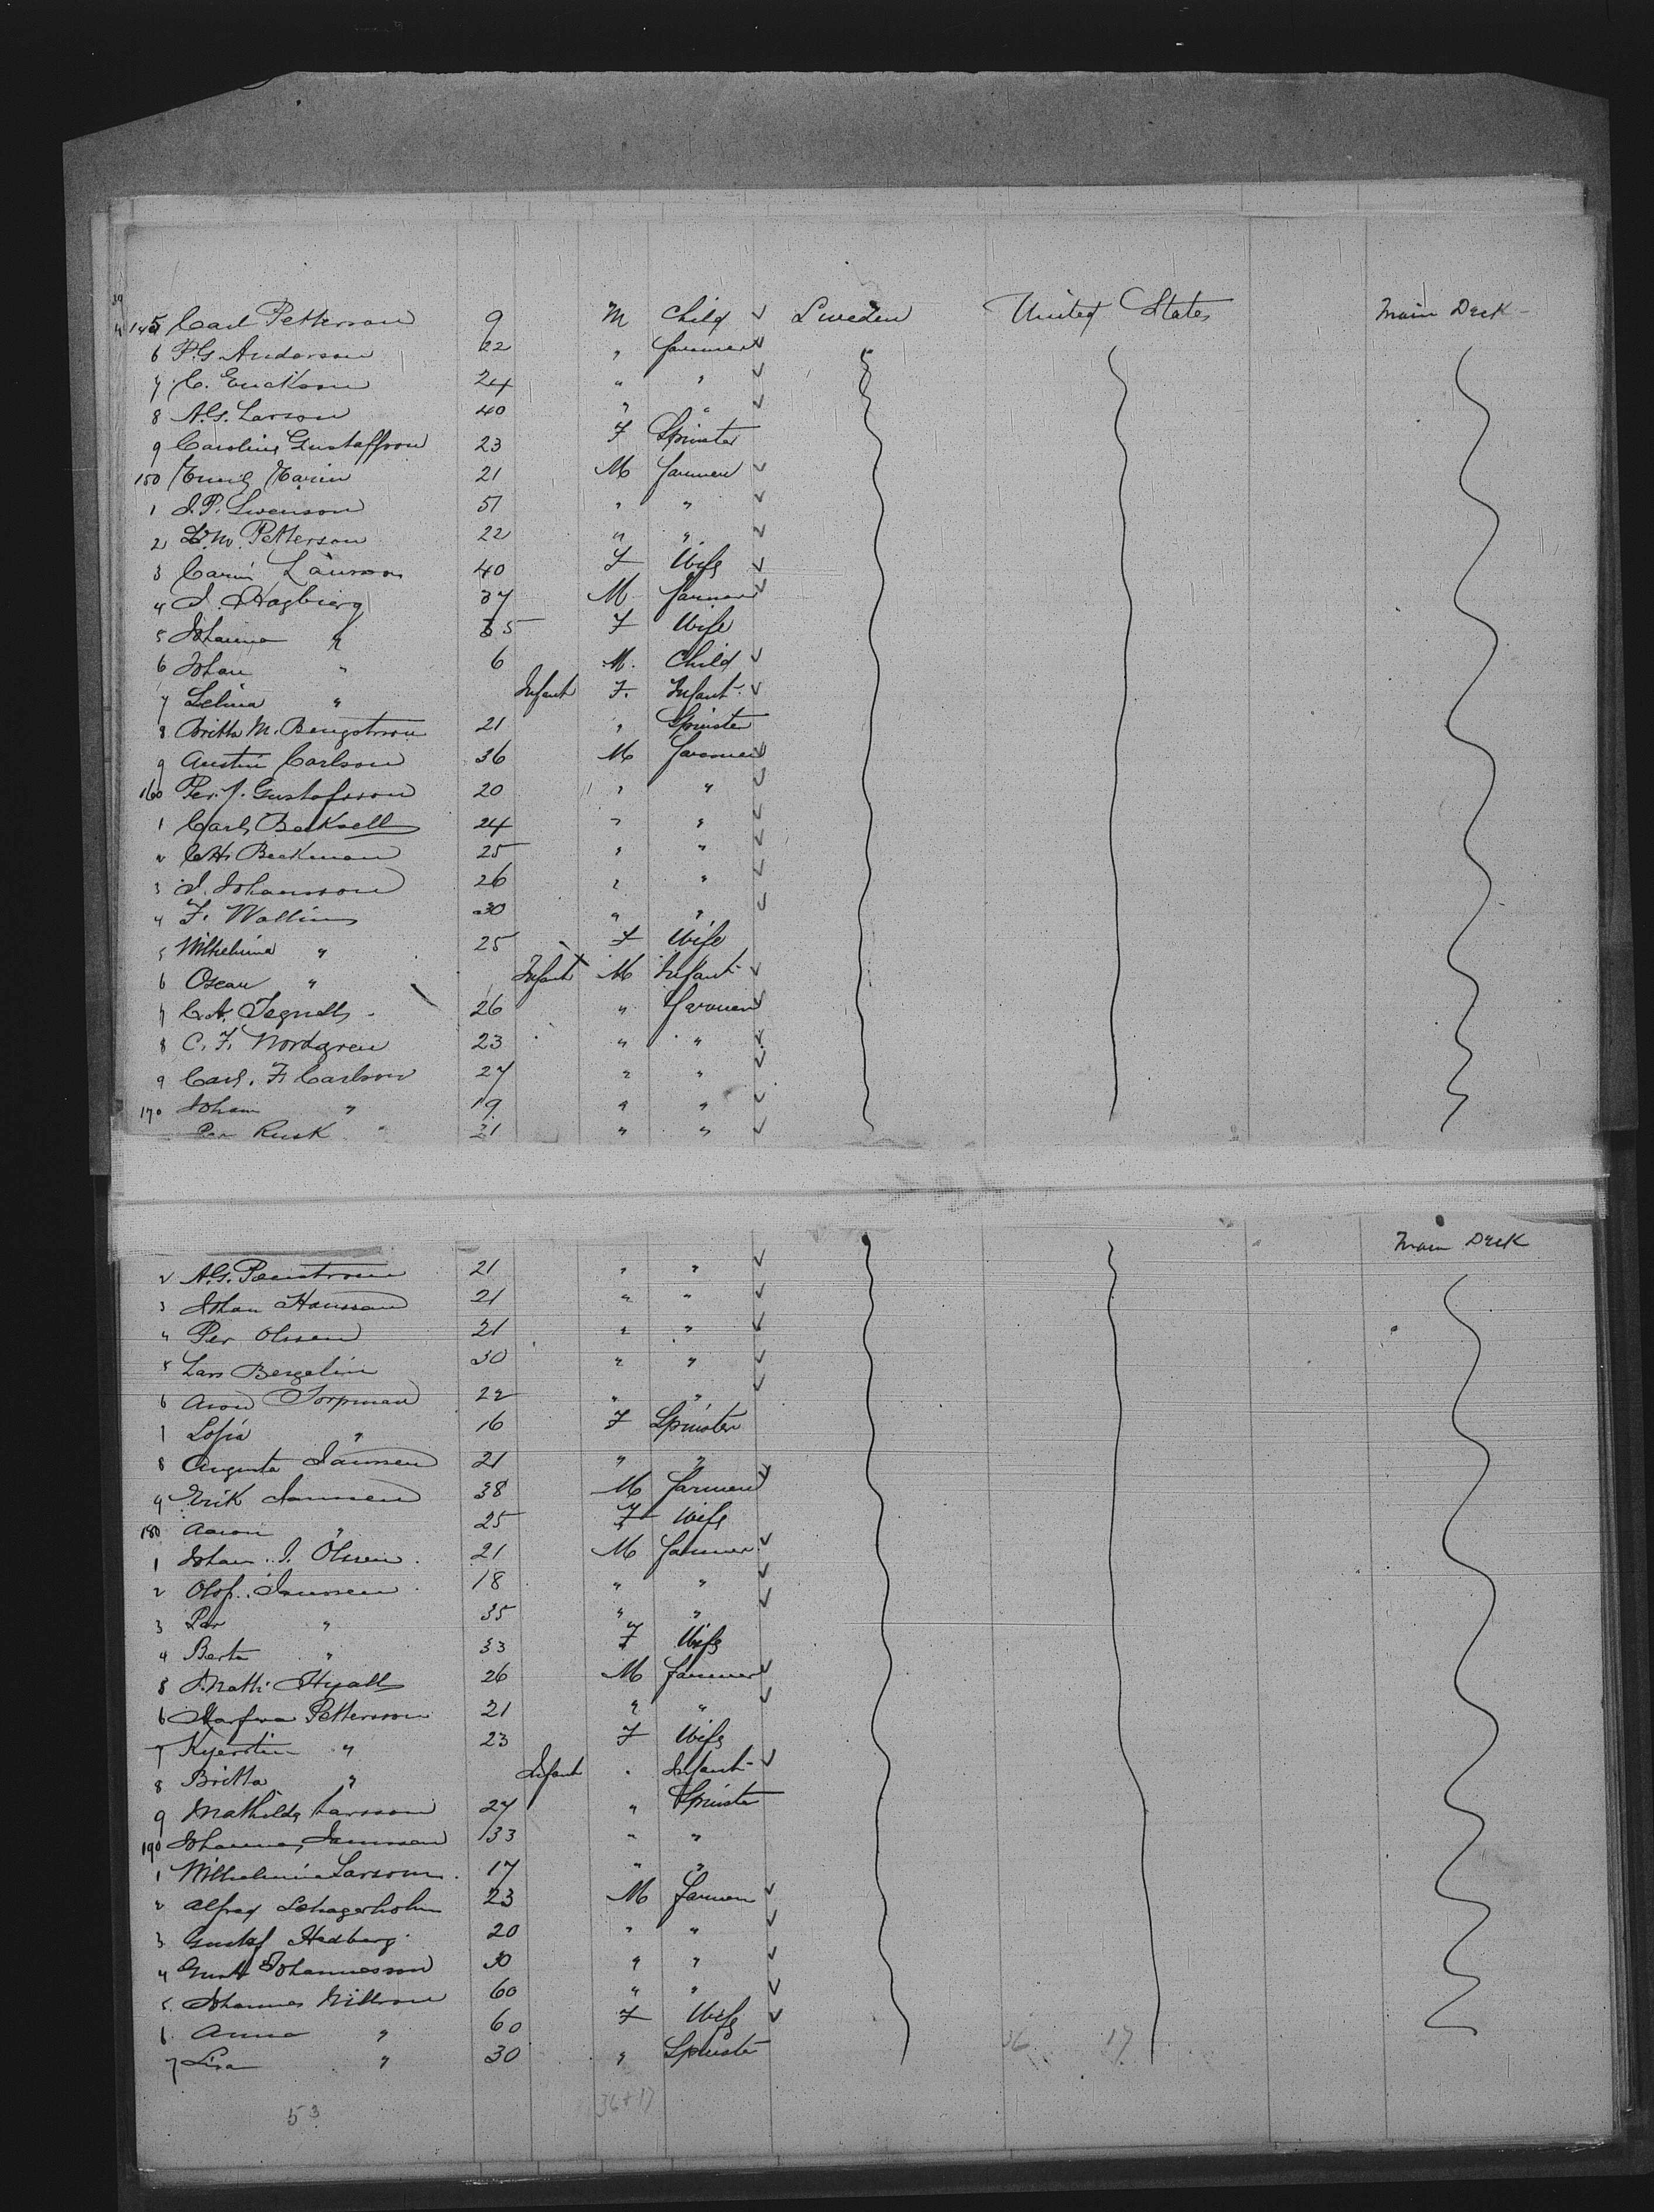 145 Carl Petterson 9 M Child ✓ Sweden United States Main Deck
6 P.G. Anderson 22 " farmer ✓
7 C. Erickson 24 " " ✓
8 A.G. Larson 40 " " ✓
9 Caroline Gustaffson 23 F Spinster
150 21 M farmer ✓
1 J.P. Swenson 51 " " ✓
2 Petterson 22 " " ✓
3 Carin 40 F Wife ✓
4 J. Hagbierg 37 M farmer ✓
5 Johanna " 35 F Wife
6 Johan " 6 M. Child ✓
7 Selma " Infant F. Infant ✓
8 Britta M. Bengtsson 21 " Spinster
9 Austin Carlson 36 M farmer ✓
160 Per. J. Gustafsson 20 " " ✓
1 Carl Beckvell 24 " " ✓
2 Beckman 25 " " ✓
3 J. Johansson 26 " " ✓
4 F. Wallin 30 " " ✓
5 Wilhelmina " 25 F Wife
6 Oscar " Infant M Infant ✓
7 C.A. Tegnell 26 " farmer ✓
8 C. F. Nordgren 23 " " ✓
9 Carl. F. Carlson 27 " " ✓
170 Johan " 19 " " ✓
Per Rusk 21 " " ✓
Main Deck
2 A.G. 21 " " ✓
3 Johan Hansson 21 " " ✓
4 Per Olssen 21 " " ✓
5 Lars Bergelin 30 " " ✓
6 Aron Torpman 22 " " ✓
7 Sofia " 16 F Spinster
8 Augusta Jannsen 21 " "
9 Erik Jannsen 38 M farmer ✓
180 " 25 F Wife
1 Johan. J. Olssen 21 M farmer ✓
2 Olof. Jannsen 18 " " ✓
3 Per " 35 " " ✓
4 Berta " 33 F Wife
5 26 M farmer ✓
6 Petterson 21 " " ✓
7 Kjerstin " 23 F Wife
8 Britta " Infant " Infant ✓
9 Mathilda Larsson 27 " Spinster
190 Johanna Jannsson 33 " "
1 Wilhelmina Larsson 17 " "
2 Alfred Schagerholm 23 M farmer ✓
3 Gustaf Hedberg 20 " " ✓
4 Gust Johannesson 30 " " ✓
5 Johannes Nillson 60 " " ✓
6 Anna " 60 F Wife ✓
7 Lisa " 30 " Spinster
36 17
53 36+17